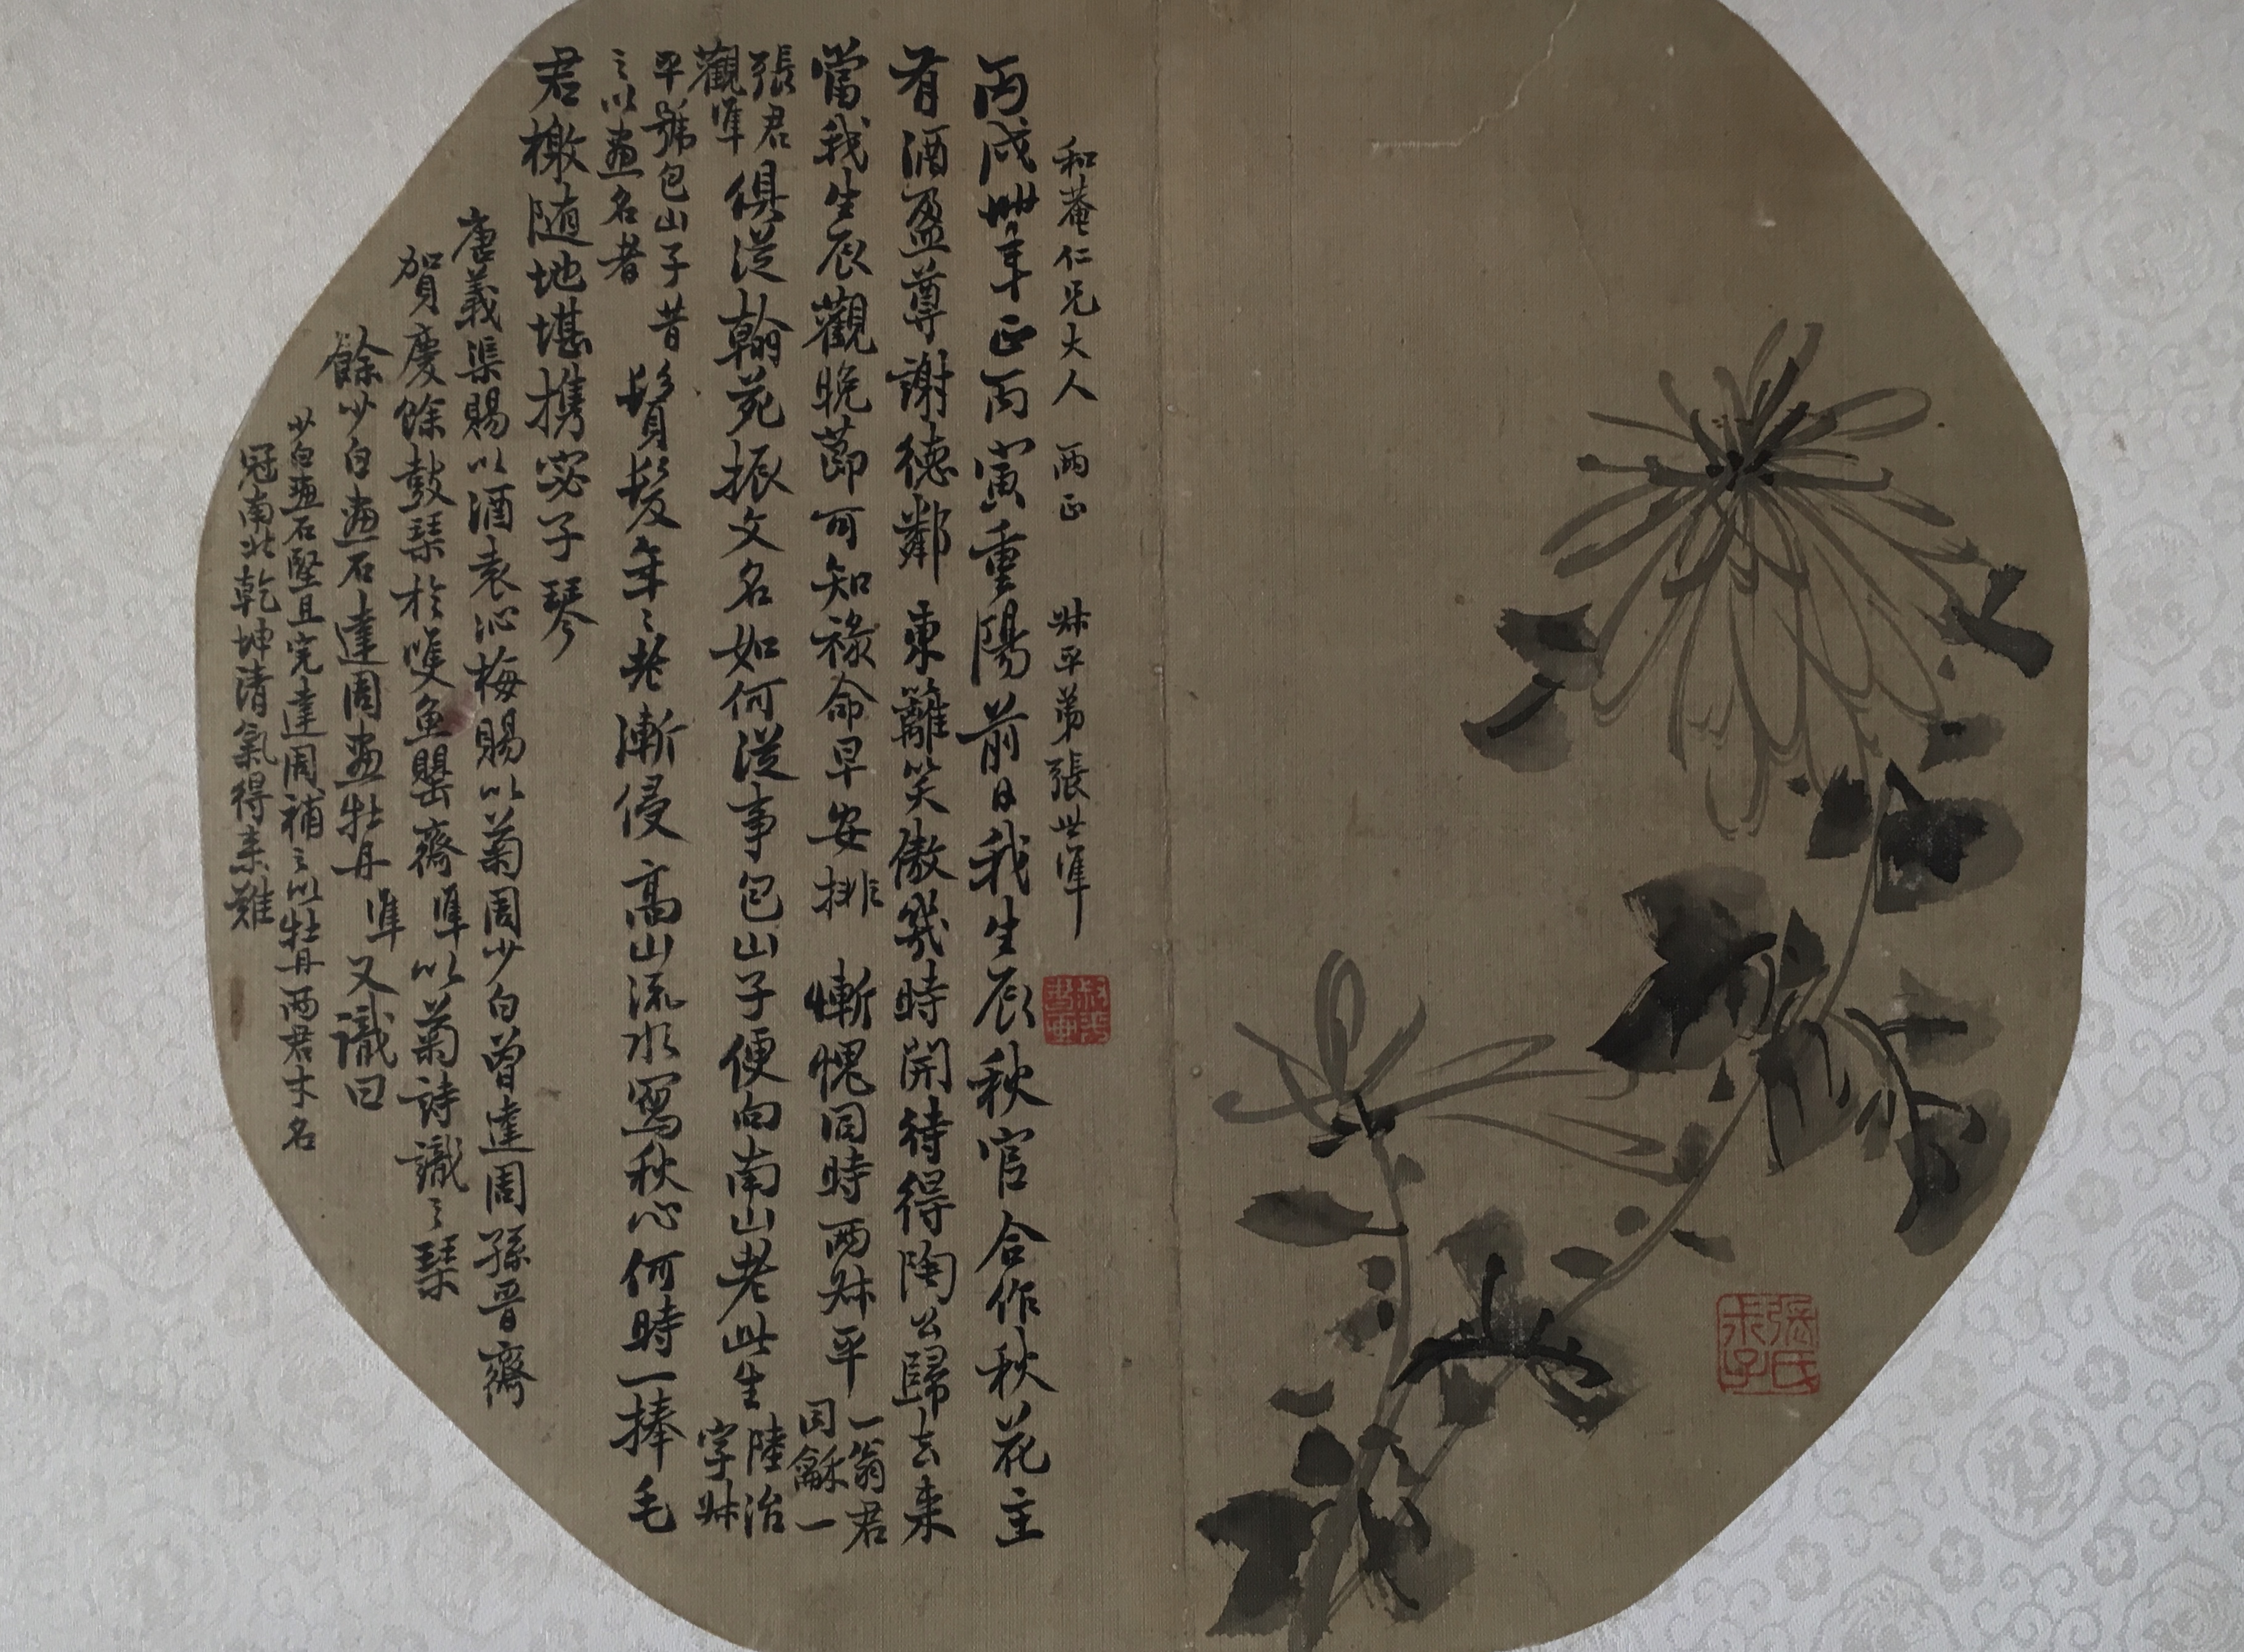 和菴仁兄大人 兩正 叔平弟張世準
叔平書画
丙戌世年正丙寅重陽前日我生辰秋官合作秋花主
有酒盈尊謝德鄰東籬笑傲幾時開待得陶公歸去来
當我生辰觀晚節可知祿命早安排慚愧同時兩叔平
一翁君
同龢一
張君
觀準
俱從翰苑振文名如何從事包山子便向南山老此生
陸治
字叔
平號包山子昔
之以畫名者
鬢髮年〻老漸侵高山流水寫秋心何時一捧毛
君檄随地堪携宓子琴
唐義渠賜以酒袁沁梅賜以菊周少白曾達周孫晋齋
賀慶餘鼓琴於嘆魚罌齋準以菊詩識之琹
餘少白畫石達周畫牡丹準又識曰
少白畫石堅且完達周補之以牡丹兩君才名
冠南北乾坤清氣得来難
張氏
子